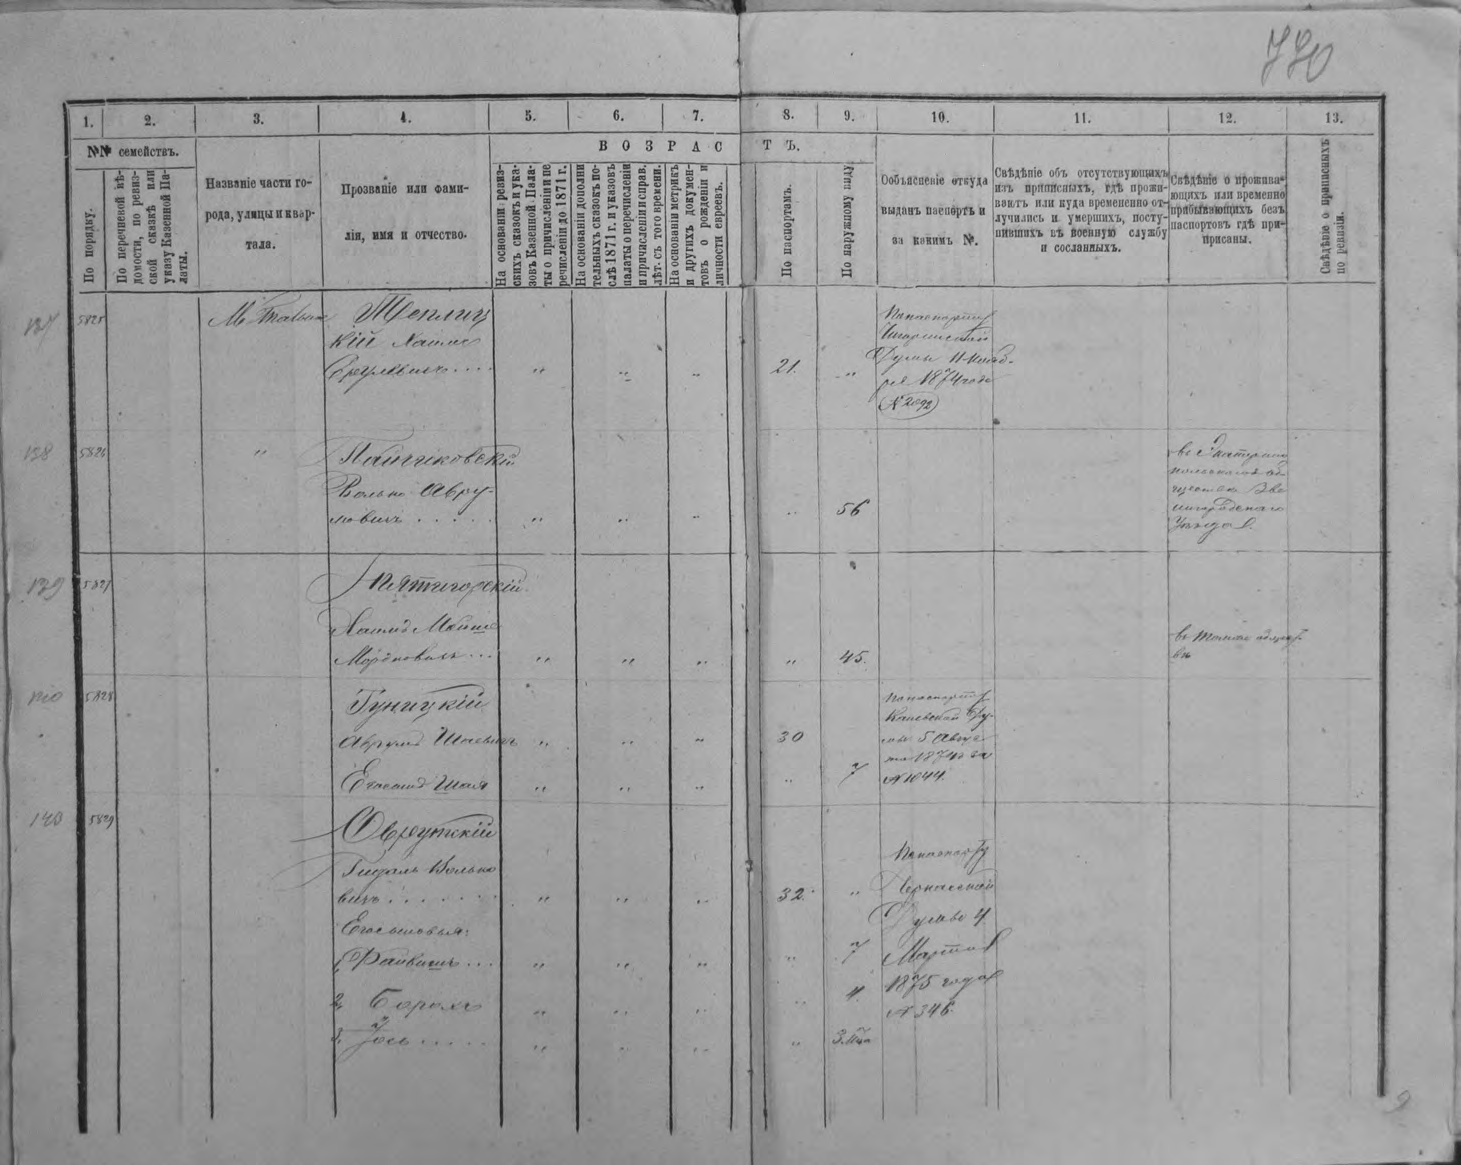 770
1. 2. 3. 4. 5. 6. 7. 8. 9. 10. 11. 12. 13.
№№ семействъ.
По порядку.
По перечневой вѣ-
домости, по ревиз-
ской сказкѣ или
указу Казенной Па-
латы.
Названіе части го-
рода, улицы и квар-
тала.
Прозваніе или фами-
лія, имя и отчество.
ВОЗРАСТЪ.
На основаніи ревиз-
скихъ сказокъ и ука-
зовъ Казенной Пала-
ты о причисленіи и пе
речисленіи до 1871 г.
На основаніи дополни
тельныхъ сказокъ по-
слѣ 1871 г. и указовъ
палаты о перечисленіи
и причисленіи и справ.
лѣт. съ того времени.
На основаніи метрикъ
и другихъ докумен-
товъ о рожденіи и
личности евреевъ.
По паспортамъ.
По наружному виду
Объясненіе откуда
выданъ паспортъ и
за какимъ №.
Свѣдѣніе объ отсутствующихъ
изъ приписныхъ, гдѣ прожи-
ваютъ или куда временно от-
лучились и умершихъ, посту-
пившихъ въ военную службу
и сосланныхъ.
Свѣдѣніе о прожива-
ющихъ или временно
прибывающихъ безъ
паспортовъ гдѣ при-
присаны.
Свѣдѣніе о приписныхъ
по ревизіи.
137 5825 М. Тальное Теплиц
кій Хаимъ
Сруліовичъ . . . . " " " 21. "
По паспорту
Чигиринской
Думы
1874 года
№ 2092
138 5826 "
Пайчиковскій
Волько Авру-
мовичъ . . . . . " " " " 56
въ Екатерино
польскомъ об
ществѣ Зве
нигородскаго
уѣзда
139 5827 Пятигорскій
Хаимъ Мойше
Мордковичъ . . . " " " " 45.
5828 Гуницкій
Аврумъ Шаевичъ " " " 30
Егосынъ Шая " " " " 7
По паспорту
Каневской Ду-
мы 5 Авгус
та 1874 за
№ 1044.
140 5829 Овручскій
Волько
вичъ . . . . . . . " " " 32. "
Егосыновья:
1, Файвишъ . . . " " " " 7
2, Борохъ " " " " 4
3, Іось . . . . . " " " " 3 мца
По паспорту
Черкасской
Думы 4
Марта
1875 года
№ 346.
9